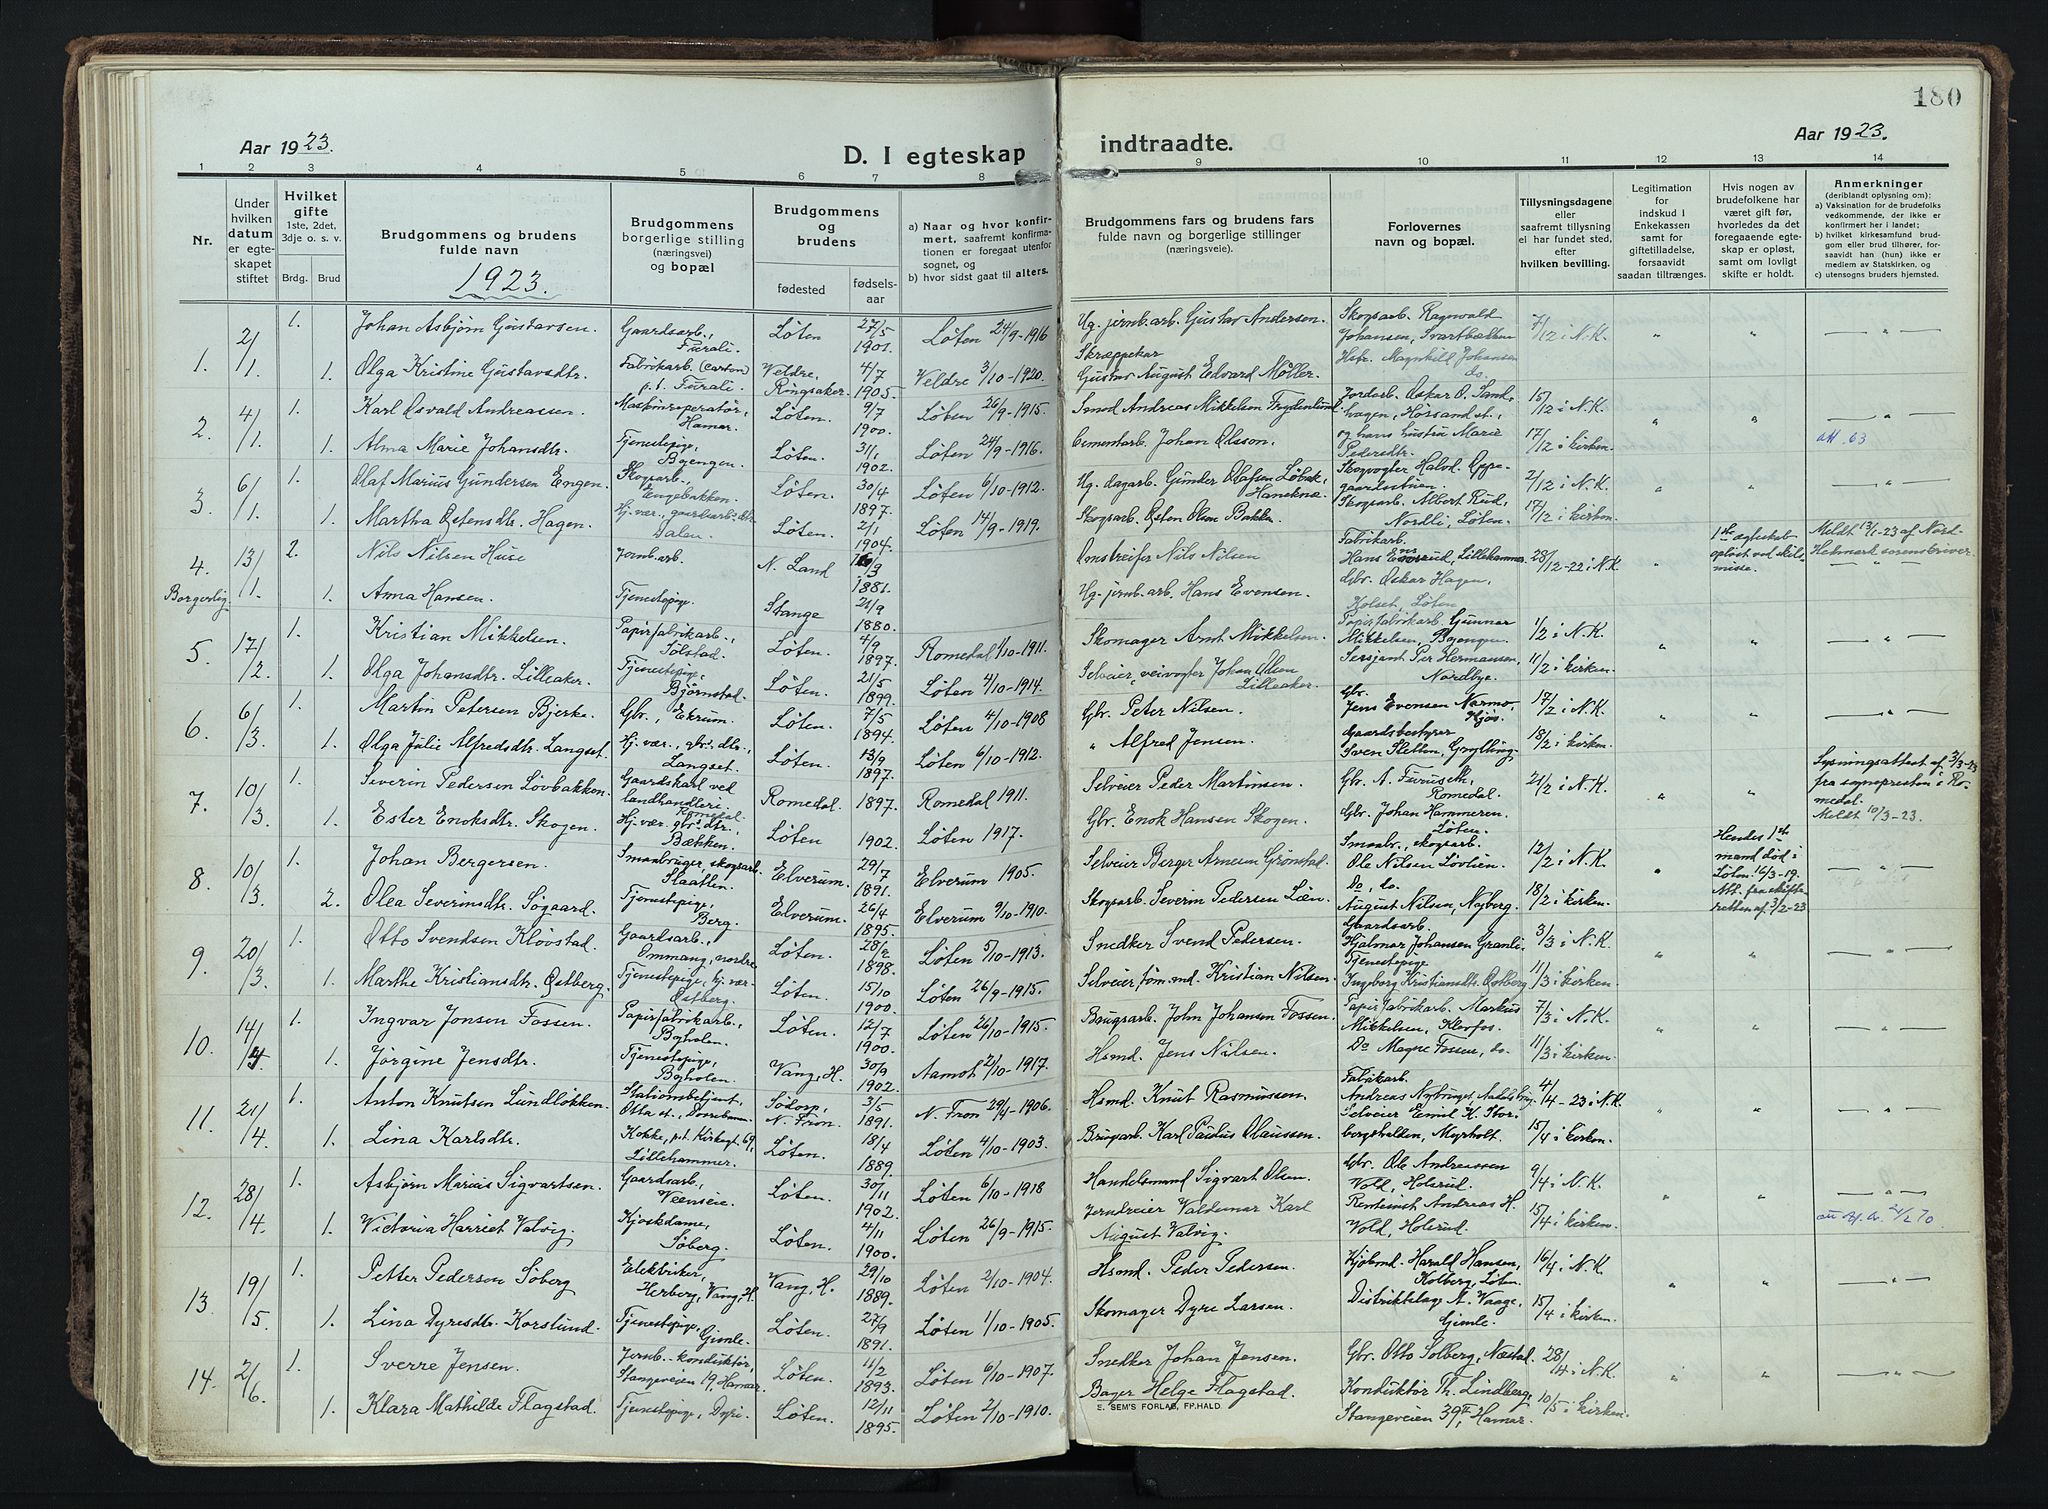 180
Aar 1923.
D. I egteskap
indtraadte.
Aar 1923.
1 2 3 4 5 6 7 8 9 10 11 12 13 14
Nr.
Under hvilken datum er egteskapet stiftet
Hvilket gifte 1ste, 2det, 3dje o. s. v.
Brdg. Brud
Brudgommens og brudens fulde navn
1923.
Brudgommens borgerlige stilling (næringsvei) og bopæl
Brudgommens og brudens
fødested
fødselsaar
a) Naar og hvor konfirmert, saafremt konfirmationen er foregaat utenfor sognet, og
b) hvor sidst gaat til alters.
Brudgommens fars og brudens fars fulde navn og borgerlige stillinger (næringsveie).
Forlovernes navn og bopæl.
Tillysningsdagene eller saafremt tillysning ei har fundet sted, efter hvilken bevilling.
Legitimation for indskud i Enkekassen samt for giftetilladelse, forsaavidt saadan tiltrænges.
Hvis nogen av brudefolkene har været gift før, hvorledes da det foregaaende egteskap er opløst, samt om lovligt skifte er holdt.
Anmerkninger (deriblandt oplysning om):
a) Vaksination for de brudefolks vedkommende, der ikke er konfirmert her i landet;
b) hvilket kirkesamfund brudgom eller brud tilhører, forsaavidt han (hun) ikke er medlem av Statskirken, og
c) utensogns bruders hjemsted.
1. 2/1. 1. Johan Asbjørn Gustavsen. Gaardsarb., Furali. Løten 27/5 1901. Løten 24/9-1916 Ug. jernb.arb. Gustav Andersen. Skogsarb. Ragnvald Johansen, Svartbækken 7/12 i N.K.
1. Olga Kristine Gustavsdtr. Fabrikarb. (carton) p.t. Furali. Veldre, Ringsaker. 4/7 1905. Veldre 3/10-1920. Skræppekar Gustav August Edvard Möller. Hstr. Magnhill Johansen do.
2. 4/1. 1. Karl Osvald Andreassen. Maskinreperatør, Hamar. Løten. 9/7 1900. Løten 26/9-1915. Smed Andreas Mikkelsen Frydenlund. Jordarb. Oskar O. Sandhagen, Høssand st., 15/12 i N.K.
1. Alma Marie Johansdtr. Tjenestepige, Byengen. Løten. 31/1 1902. Løten 24/9-1916. Cementarb. Johan Olsson. og hans hustru Marie Pedersdtr. 17/12 i kirken. att. 63
3. 6/1. 1. Olaf Marius Gundersen Engen. Skogsarb. Engebakken. Løten. 30/4 1897. Løten 6/10-1912. Ug. dagarb. Gunder Olafsen Løbak, Haneknæ. Skogvogter Halvd. Oppegaardsstuen. 2/12 i N.K.
1. Martha Østensdtr. Hagen. Hj. vær., gaardsarb. dtr. Dalen. Løten. 2/1 1904. Løten 14/9-1919. Skogsarb. Østen Olsen Bakken. Skogsarb. Albert Rud, Nordli, Løten. 17/12 i kirken.
4. Borgerlig 13/1. 2. Nils Nilsen Huse Jernb.arb. N. Land 1881. Omstreifer Nils Nilsen Fabrikarb. Hans Lillehammer 28/12-22 i N.K. 1ste egteskab opløst ved skilsmisse. Meldt 13/1-23 af Nord-Hedmark sorenskriver.
1. Anna Hansen. Tjenestepige. Stange 21/9 1880. Ug. jernb.arb. Hans Evensen. Gbr. Oskar Hagen, Kolset, Løten
5. 17/2. 1. Kristian Mikkelsen. Papirfabrikarb., Tølstad. Løten. 4/9 1897. Romedal 1/10-1911. Skomager Arnt Mikkelsen. Papirfabrikarb. Gunnar Mikkelsen, Byengen. 1/2 i N.K.
1. Olga Johansdtr. Lilleaker. Tjenestepige, Bjørnstad. Løten. 21/5 1899. Løten 4/10-1914. Selveier, veivogter Johan Olsen Lilleaker. Sersjant Per Hermansen, Nordbye. 11/2 i kirken.
6. 6/3. 1. Martin Petersen Bjerke. Gbr., Ekrum. Løten. 7/5 1894. Løten 4/10-1908 Gbr. Peter Nilsen. Gbr. Jens Evensen Narmo, Kjøs. 17/2 i N.K.
1. Olga Julie Alfredsdtr. Langset. Hj. vær., gbr. dtr., Langset. Løten. 13/9 1897. Løten 6/10-1912. " Alfred Jensen. Gaardsbestyrer Sven Sletten, Grylling. 18/2 i kirken.
7. 10/3. 1. Severin Pedersen Lövbakken. Gaardskarl ved landhandleri. Romedal. Romedal 1897. Romedal 1911. Selveier Peder Martinsen. Gbr. A. Furuseth, Romedal. 21/2 i N.K. Lysningsattest af 3/3-23 fra sognepresten i Romedal.
1. Ester Enoksdtr. Skogen. Hj. vær. gbr. dtr., Bækken. Løten 1902. Løten 1917. Gbr. Enok Hansen Skogen. Gbr. Johan Hammeren. Løten. Meldt 10/3-23.
8. 10/3. 1. Johan Bergersen. Smaabruger, skogsarb. Slaatten. Elverum. 29/7 1891. Elverum 1905. Selveier Berger Arnesen Grønstad. Smaabr., skogsarb. Ole Nilsen Lövlien. 12/2 i N.K. Hendes 1ste mand død i Løten 16/3-19. Att. fra skifteretten af 3/2-23
2. Olea Severinsdtr. Søgaard. Tjenestepige, Berg. Elverum. 26/4 1895. Elverum 9/10-1910. Skogsarb. Severin Pedersen Læn. Do, do. August Nilsen, Nyberg. 18/2 i kirken.
9. 20/3. 1. Otto Svendsen Kløvstad. Gaardsarb., Ommang, nordre Løten. 28/2 1898. Løten 5/10-1913. Snedker Svend Pedersen. Gaardsarb. Hjalmar Johansen Granli. 3/3 i N.K.
1. Marthe Kristiansdtr. Østberg. Tjenestepige, hj. vær. Østberg. Løten. 15/10 1900. Løten 26/9-1915. Selveier, tøm.md. Kristian Nilsen. Tjenestepige Ingeborg Kristiansdtr. Østberg 11/3 i kirken
10. 14/4. 1. Ingvar Jonsen Fossen. Papirfabrikarb., Byholen. Løten. 12/7 1900. Løten 26/10-1915. Brugsarb. John Johansen Fossen. Papirfabrikarb. Markus Mikkelsen, Klevfos. 7/3 i N.K.
1. Jørgine Jensdtr. Tjenestepige, Byholen. Vang, H. 30/9 1902. Aamot 21/10-1917. Hsmd. Jens Nilsen. Do Magne Fossen, do. 11/3 i kirken.
11. 21/4. 1. Anton Knutsen Lundløkken. Stationsbetjent, Otta st., Dovrebanen Sødorp, N. Fron. 3/5 1891. N. Fron 29/4-1906. Hsmd. Knut Rasmussen. Fabrikarb. Andreas Nybruget, Aadalsbrug. 4/4-23 i N.K.
1. Lina Karlsdtr. Kokke, p.t. Kirkegt. 69, Lillehammer. Løten. 18/4 1889. Løten 4/10-1903. Brugarb. Karl Paulus Olaussen. Selveier Emil K. Storbergshalden, Myrholt. 15/4 i kirken.
12. 28/4. 1. Asbjørn Marius Sigvartsen. Gaardsarb., Veenseie. Løten. 30/11 1902. Løten 6/10-1918 Handelsmand Sigvart Olsen. Gbr. Ole Andreassen Vold, Holsrud. 9/4 i N.K.
1. Victoria Harriet Valvig. Kjoskdame, Søberg. Løten. 4/11 1900. Løten 26/9-1915. Jerndreier Valdemar Karl August Valvig. Rentenist Andreas H. Vold, Holsrud. 15/4 i kirken.
13. 19/5. 1. Petter Pedersen Søberg Elektriker, Herberg, Vang, H. Vang, H. 29/10 1889. Løten 2/10-1904. Hsmd. Peder Pedersen. Kjøbmd. Harald Hansen, Kolberg, Løten. 16/4 i N.K.
1. Lina Dyresdtr. Korslund. Tjenestepige, Gimle. Løten. 27/9 1891. Løten 1/10-1905. Skomager Dyre Larsen. Distriktslæge A. Waage, Gimle. 15/4 i kirken.
14. 2/6. 1. Sverre Jensen. Jernb.-konduktør, Stangeveien 19, Hamar. Løten. 11/2 1893. Løten 6/10-1907. Snedker Johan Jensen. Gbr. Otto Solberg, Næstad. 28/4 i N.K.
1. Klara Mathilde Flagstad. Tjenestepige, Dyri. Løten. 12/11 1895. Løten 2/10-1910. Bager Helge Flagstad. Konduktør Th. Lindberg, Stangeveien 39 II, Hamar. 10/5 i kirken.
E. SEM'S FORLAG, FR.HALD.